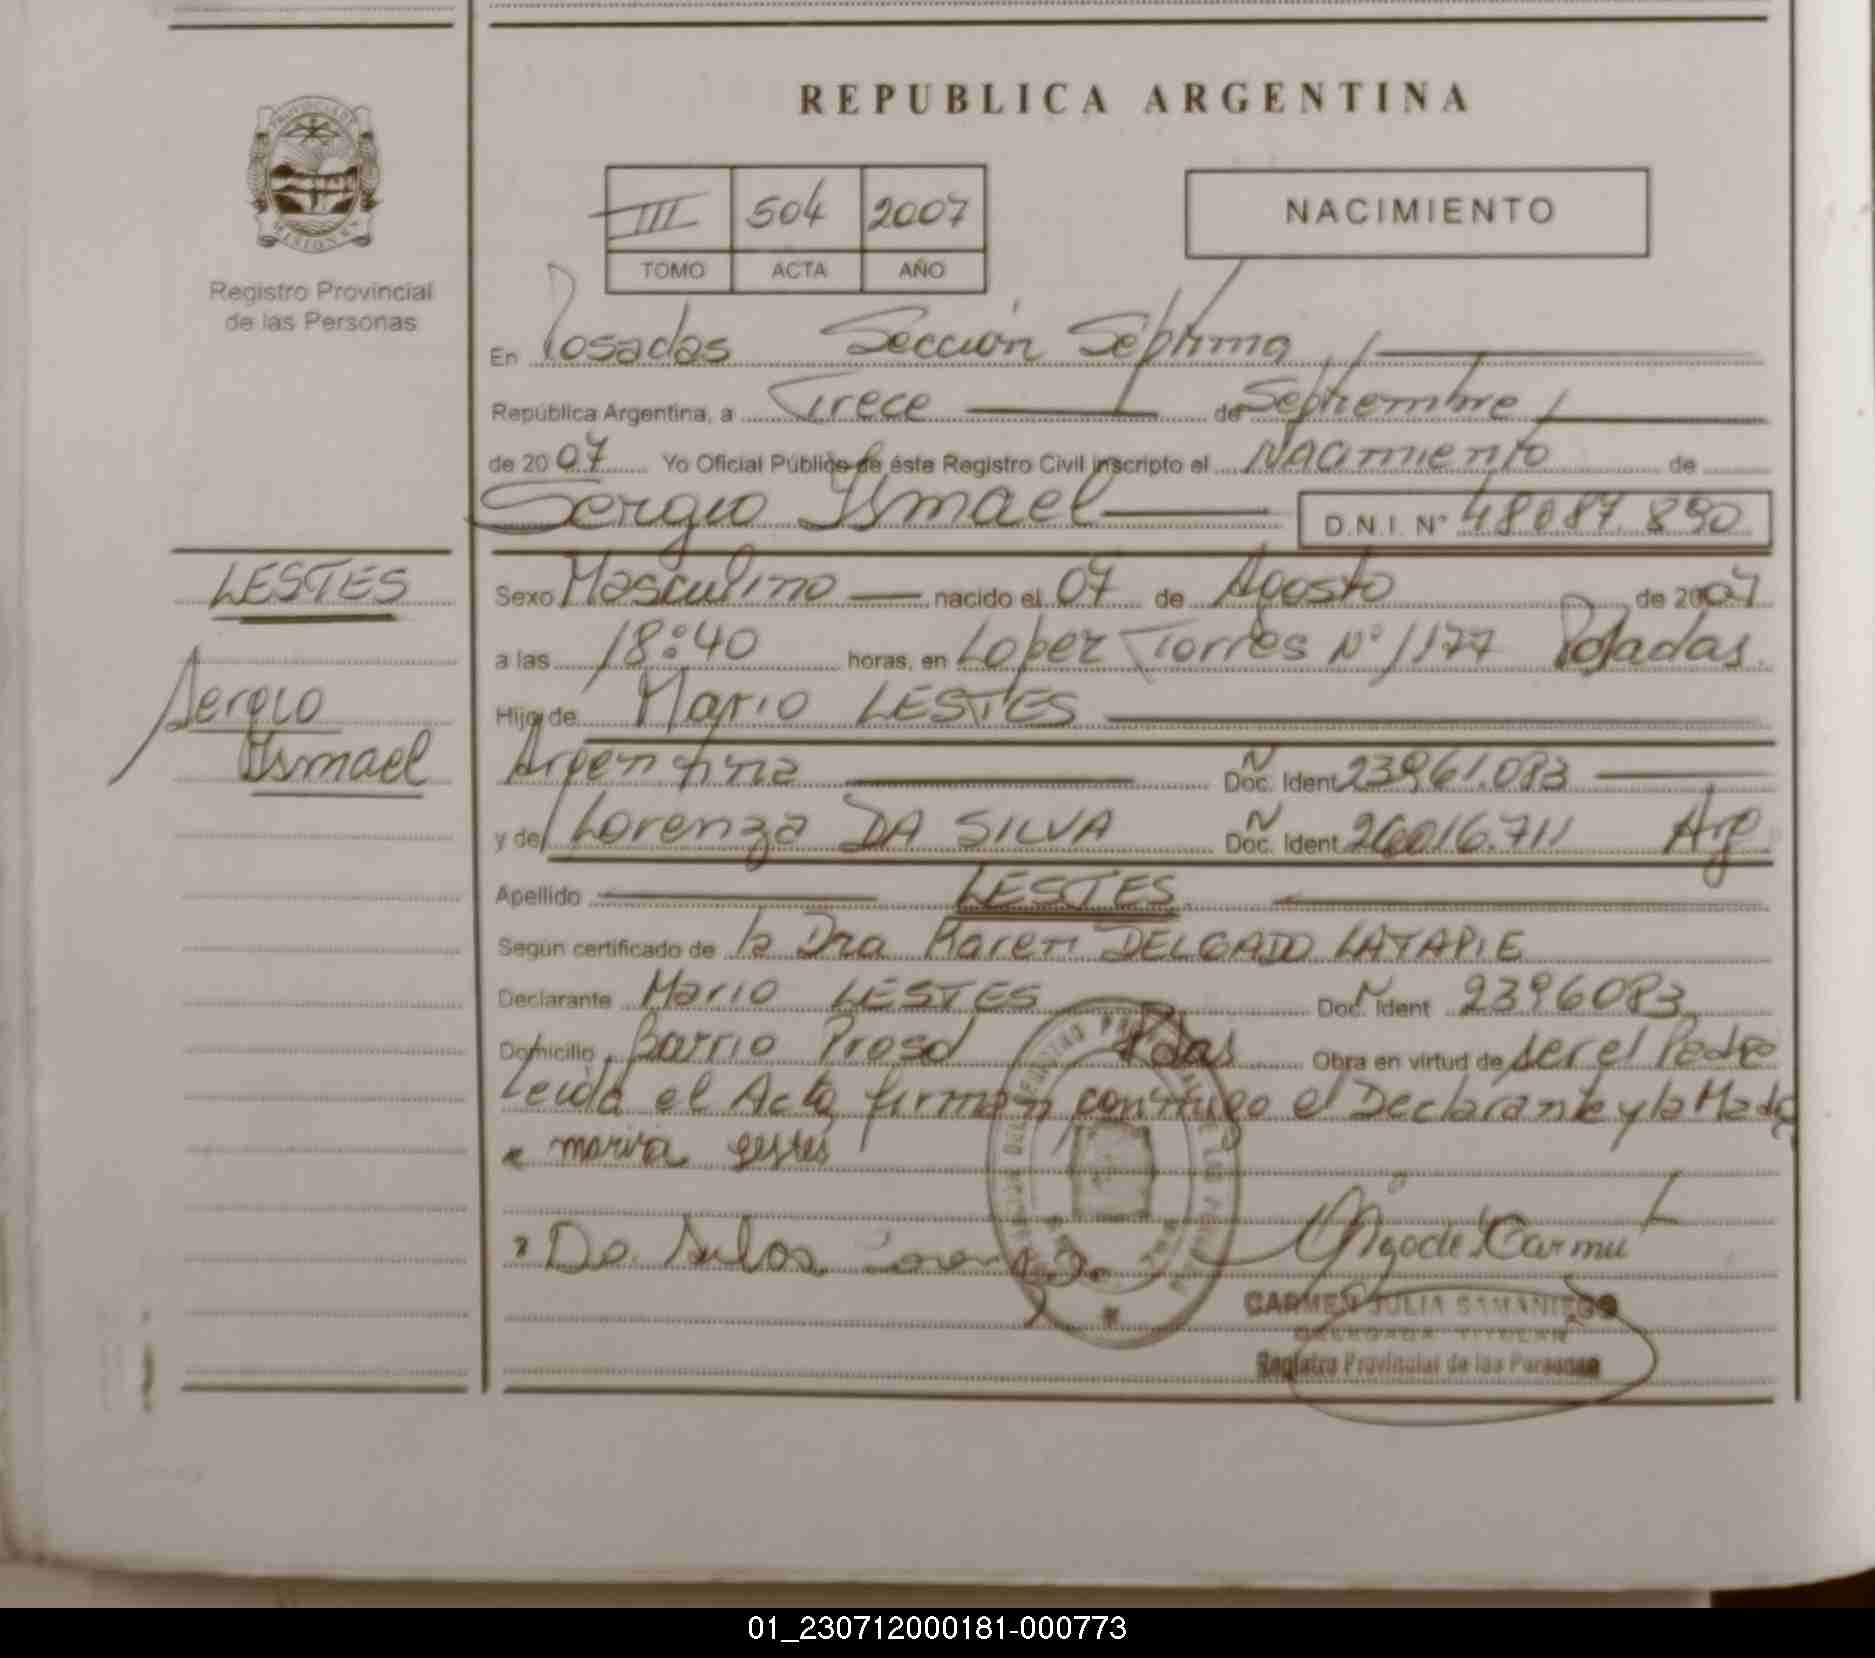 REPUBLICA ARGENTINA
PROVINCIA DE MISIONES
Registro Provincial
de las Personas
III 504 2007
TOMO ACTA AÑO
NACIMIENTO
En Posadas Sección Séptima
República Argentina, a Trece de Septiembre
de 2007 Yo Oficial Público de éste Registro Civil inscripto el Nacimiento de
Sergio Ismael D.N.I. N° 48087.890
LESTES
Sergio
Ismael
Sexo Masculino nacido el 07 de Agosto de 2007
a las 18:40 horas, en Lopez Torres N° 1177 Posadas.
Hijo de Mario LESTES
Argentina Doc. Ident 23961.083
y de Lorenza DA SILVA Doc. Ident 26016.711 Arg
Apellido LESTES
Según certificado de la Dra Karen DELGADO LATAPIE
Declarante Mario LESTES Doc. Ident 2396083
Domicilio Barrio Prosol Pdas Obra en virtud de ser el Padre
Leida el Acta firman conmigo el Declarante y la Madre
Da Silva
CARMEN JULIA SAMANIEGO
DELEGADA TITULAR
Registro Provincial de las Personas
01_230712000181-000773